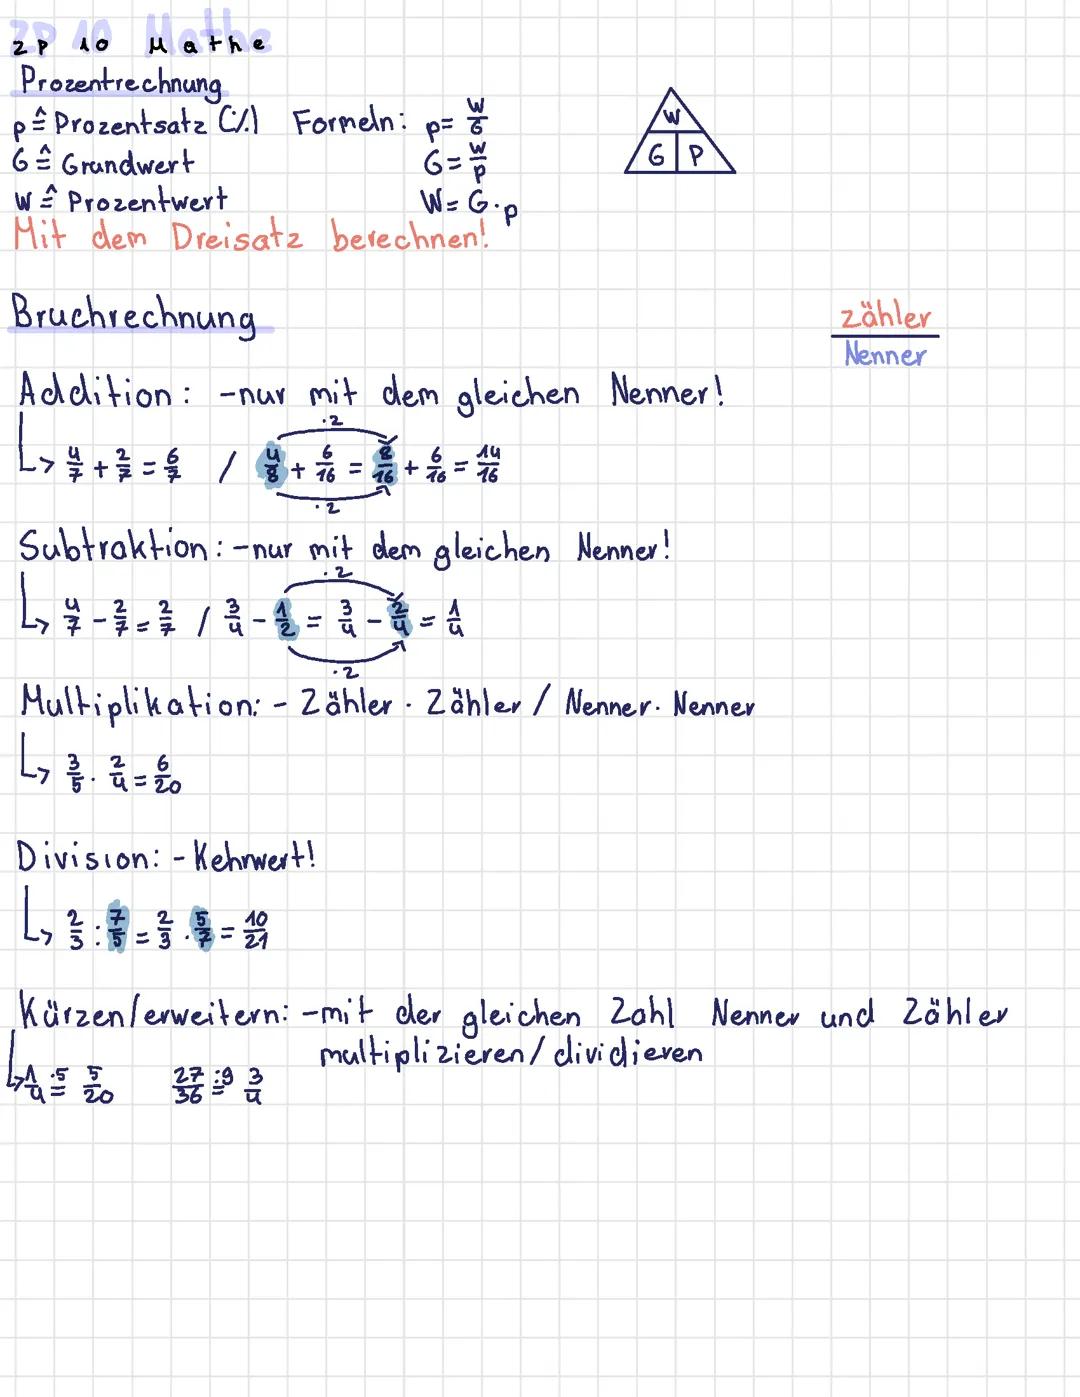 ZP 10 Mathe
ZP 10 Mathe
Prozentrechnung
p ≙ Prozentsatz (%) Formeln: p = W/G
G ≙ Grundwert G = W/p
W ≙ Prozentwert W = G · p
W
G P
Mit dem Dreisatz berechnen!
Bruchrechnung
Zähler
Nenner
Addition: - nur mit dem gleichen Nenner!
·2
↳ 4/7 + 2/7 = 6/7 / 4/8 + 6/16 = 8/16 + 6/16 = 14/16
·2
Subtraktion: - nur mit dem gleichen Nenner!
·2
↳ 4/7 - 2/7 = 2/7 / 3/4 - 1/2 = 3/4 - 2/4 = 1/4
·2
Multiplikation: - Zähler · Zähler / Nenner · Nenner
↳ 3/5 · 2/4 = 6/20
Division: - Kehrwert!
↳ 2/3 : 7/5 = 2/3 · 5/7 = 10/21
Kürzen/erweitern: - mit der gleichen Zahl Nenner und Zähler
multiplizieren/dividieren
↳ 1/4 ·5 = 5/20 27/36 :9 = 3/4